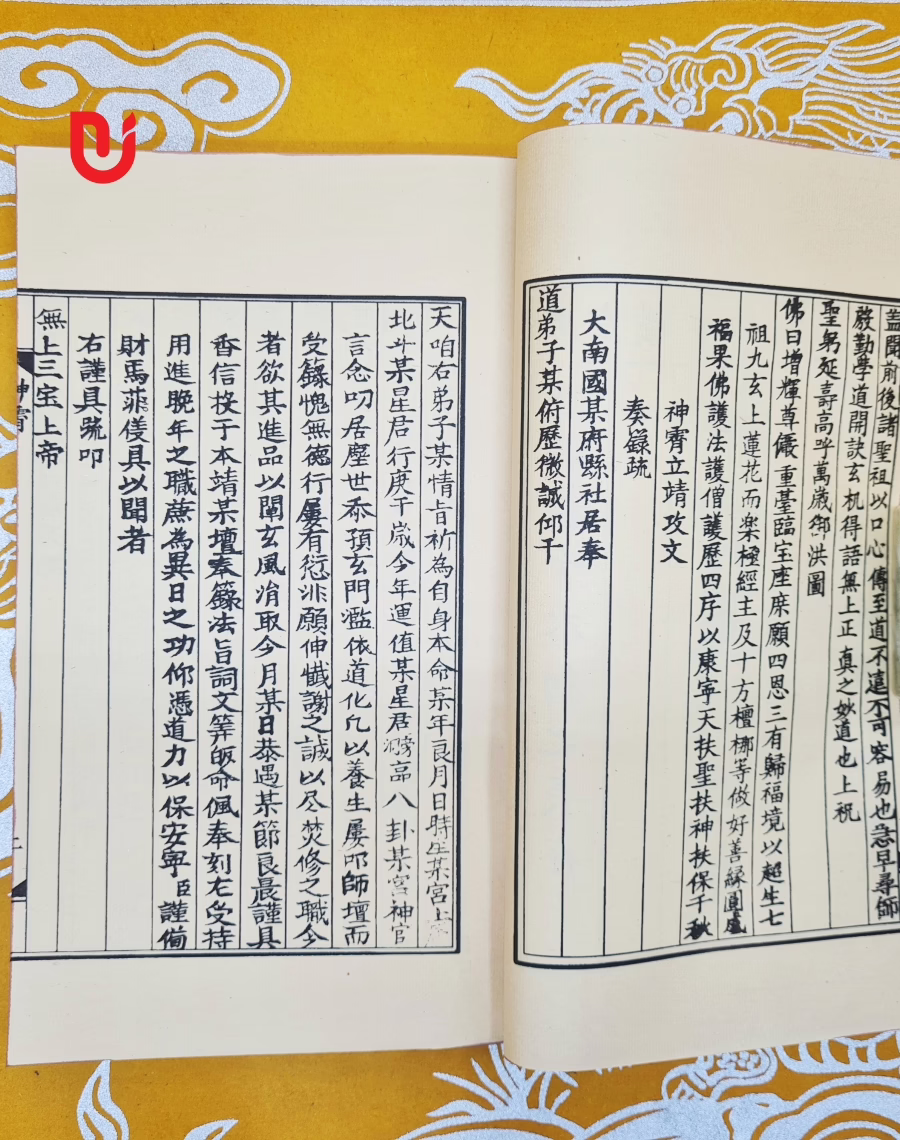 蓋聞前後諸聖祖以口心傳至道不遠不可容易也急早尋師
啟勤學道開訣玄机得語無上正真之妙道也上祝
聖躬延壽高呼萬歲鄉洪圖
佛日增輝尊儼重臺臨宝座庶願四恩三有歸福境以超生七
祖九玄上蓮花而楽極經主及十方檀梛等做好善緣圓處
福果佛護法護僧護歷四序以康寧天扶聖扶神扶保千秋
神霄立靖攻文
奏籙疏
大南國某府縣社居奉
道弟子某俯歷微誠仰干
天咱右弟子某情旨祈為自身本命某年良月日時生某宮上
北斗某星居行庚干歲今年運值某星君 八卦某宮神官
言念叨居塵世忝預玄門濫依道化凢以養生屢叩師壇而
受籙愧無德行屢有愆非願伸懺謝之誠以尽焚修之職今
者欲其進品以闡玄風涓取今月某日恭遇某節良晨謹具
香信投于本靖某壇奉籙法旨詞文筭皈命佩奉刻左受持
用進晚年之職蔗為異日之功仰憑道力以保安寧臣謹偹
財馬菲儀具以聞者
右謹具疏叩
無上三宝上帝
神霄